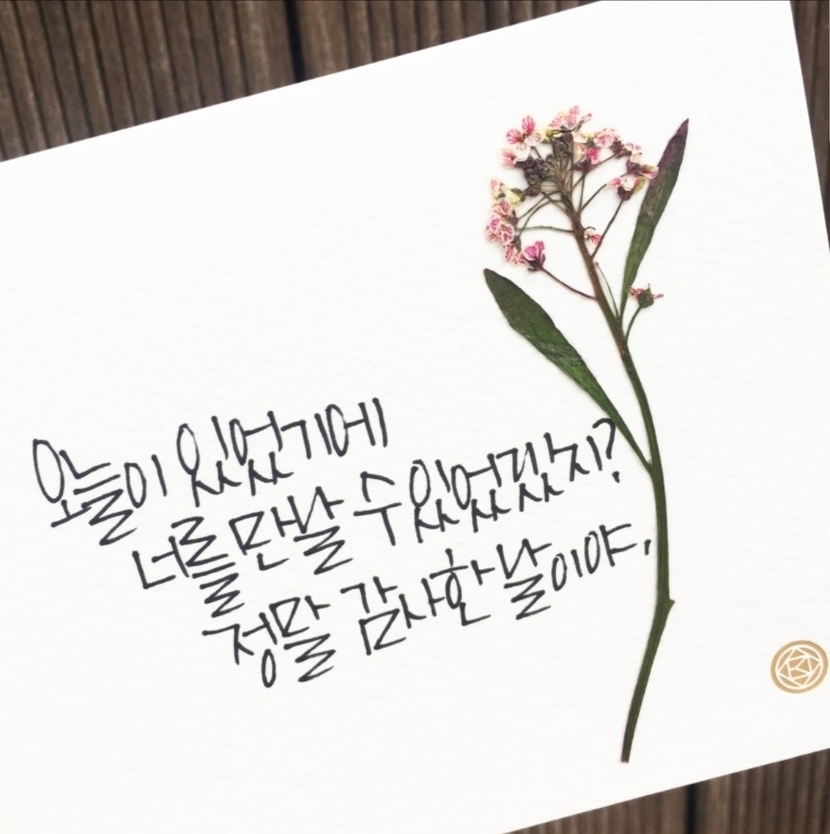 오늘이 있었기에
너를 만날 수 있었겠지?
정말 감사한 날이야,